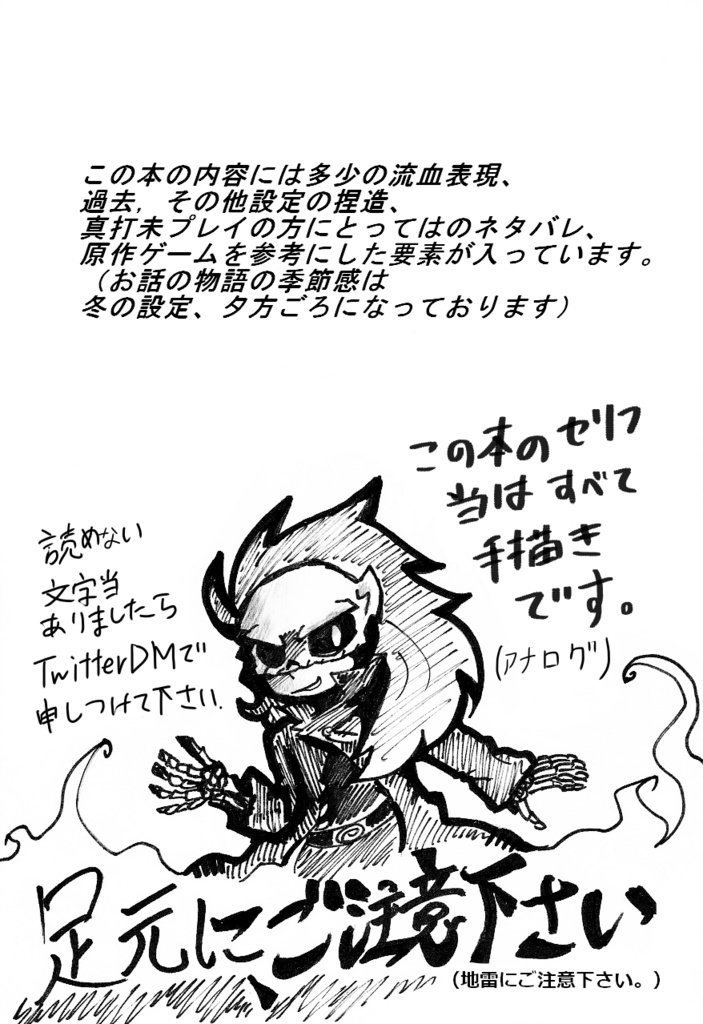 この本の内容には多少の流血表現、
過去，その他設定の捏造、
真打未プレイの方にとってはのネタバレ、
原作ゲームを参考にした要素が入っています。
（お話の物語の季節感は
冬の設定、夕方ごろになっております）
この本のセリフ
当はすべて
手描き
です。
(アナログ)
読めない
文字当
ありましたら
TwitterDMで
申しつけて下さい.
足元に、ご注意下さい
（地雷にご注意下さい。）